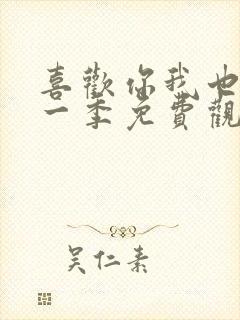 喜歡你我也
一季免費觀
吴仁素